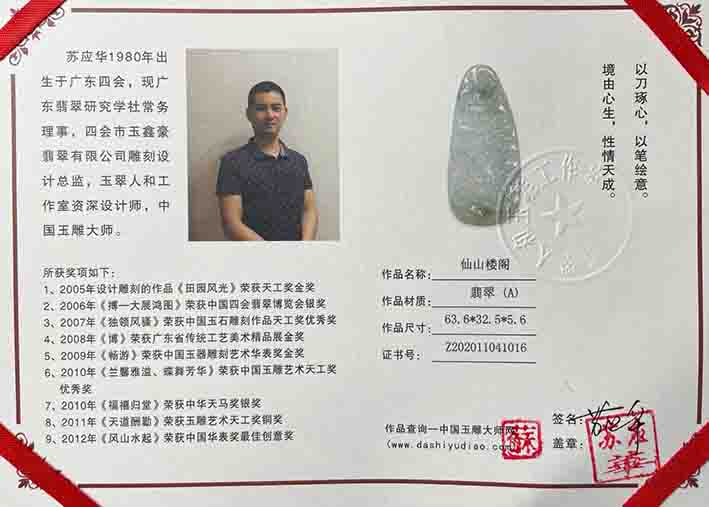 苏应华1980年出
生于广东四会，现广
东翡翠研究学社常务
理事，四会市玉鑫豪
翡翠有限公司雕刻设
计总监，玉翠人和工
作室资深设计师，中
国玉雕大师。
以刀琢心，以笔绘意。
境由心生，性情天成。
所获奖项如下：
1、2005年设计雕刻的作品《田园风光》荣获天工奖金奖
2、2006年《搏一大展鸿图》荣获中国四会翡翠博览会银奖
3、2007年《独领风骚》荣获中国玉石雕刻作品天工奖优秀奖
4、2008年《博》荣获广东省传统工艺美术精品展金奖
5、2009年《畅游》荣获中国玉器雕刻艺术华表奖金奖
6、2010年《兰馨雅溢、蝶舞芳华》荣获中国玉雕艺术天工奖
优秀奖
7、2010年《福禧归堂》荣获中华天马奖银奖
8、2011年《天道酬勤》荣获玉雕艺术天工奖铜奖
9、2012年《风山水起》荣获中国华表奖最佳创意奖
作品名称: 仙山楼阁
作品材质: 翡翠（A）
作品尺寸: 63.6*32.5*5.6
证书号: Z202011041016
作品查询一中国玉雕大师网
(www.dashiyudiao.com)
蘇
签名:
盖章: